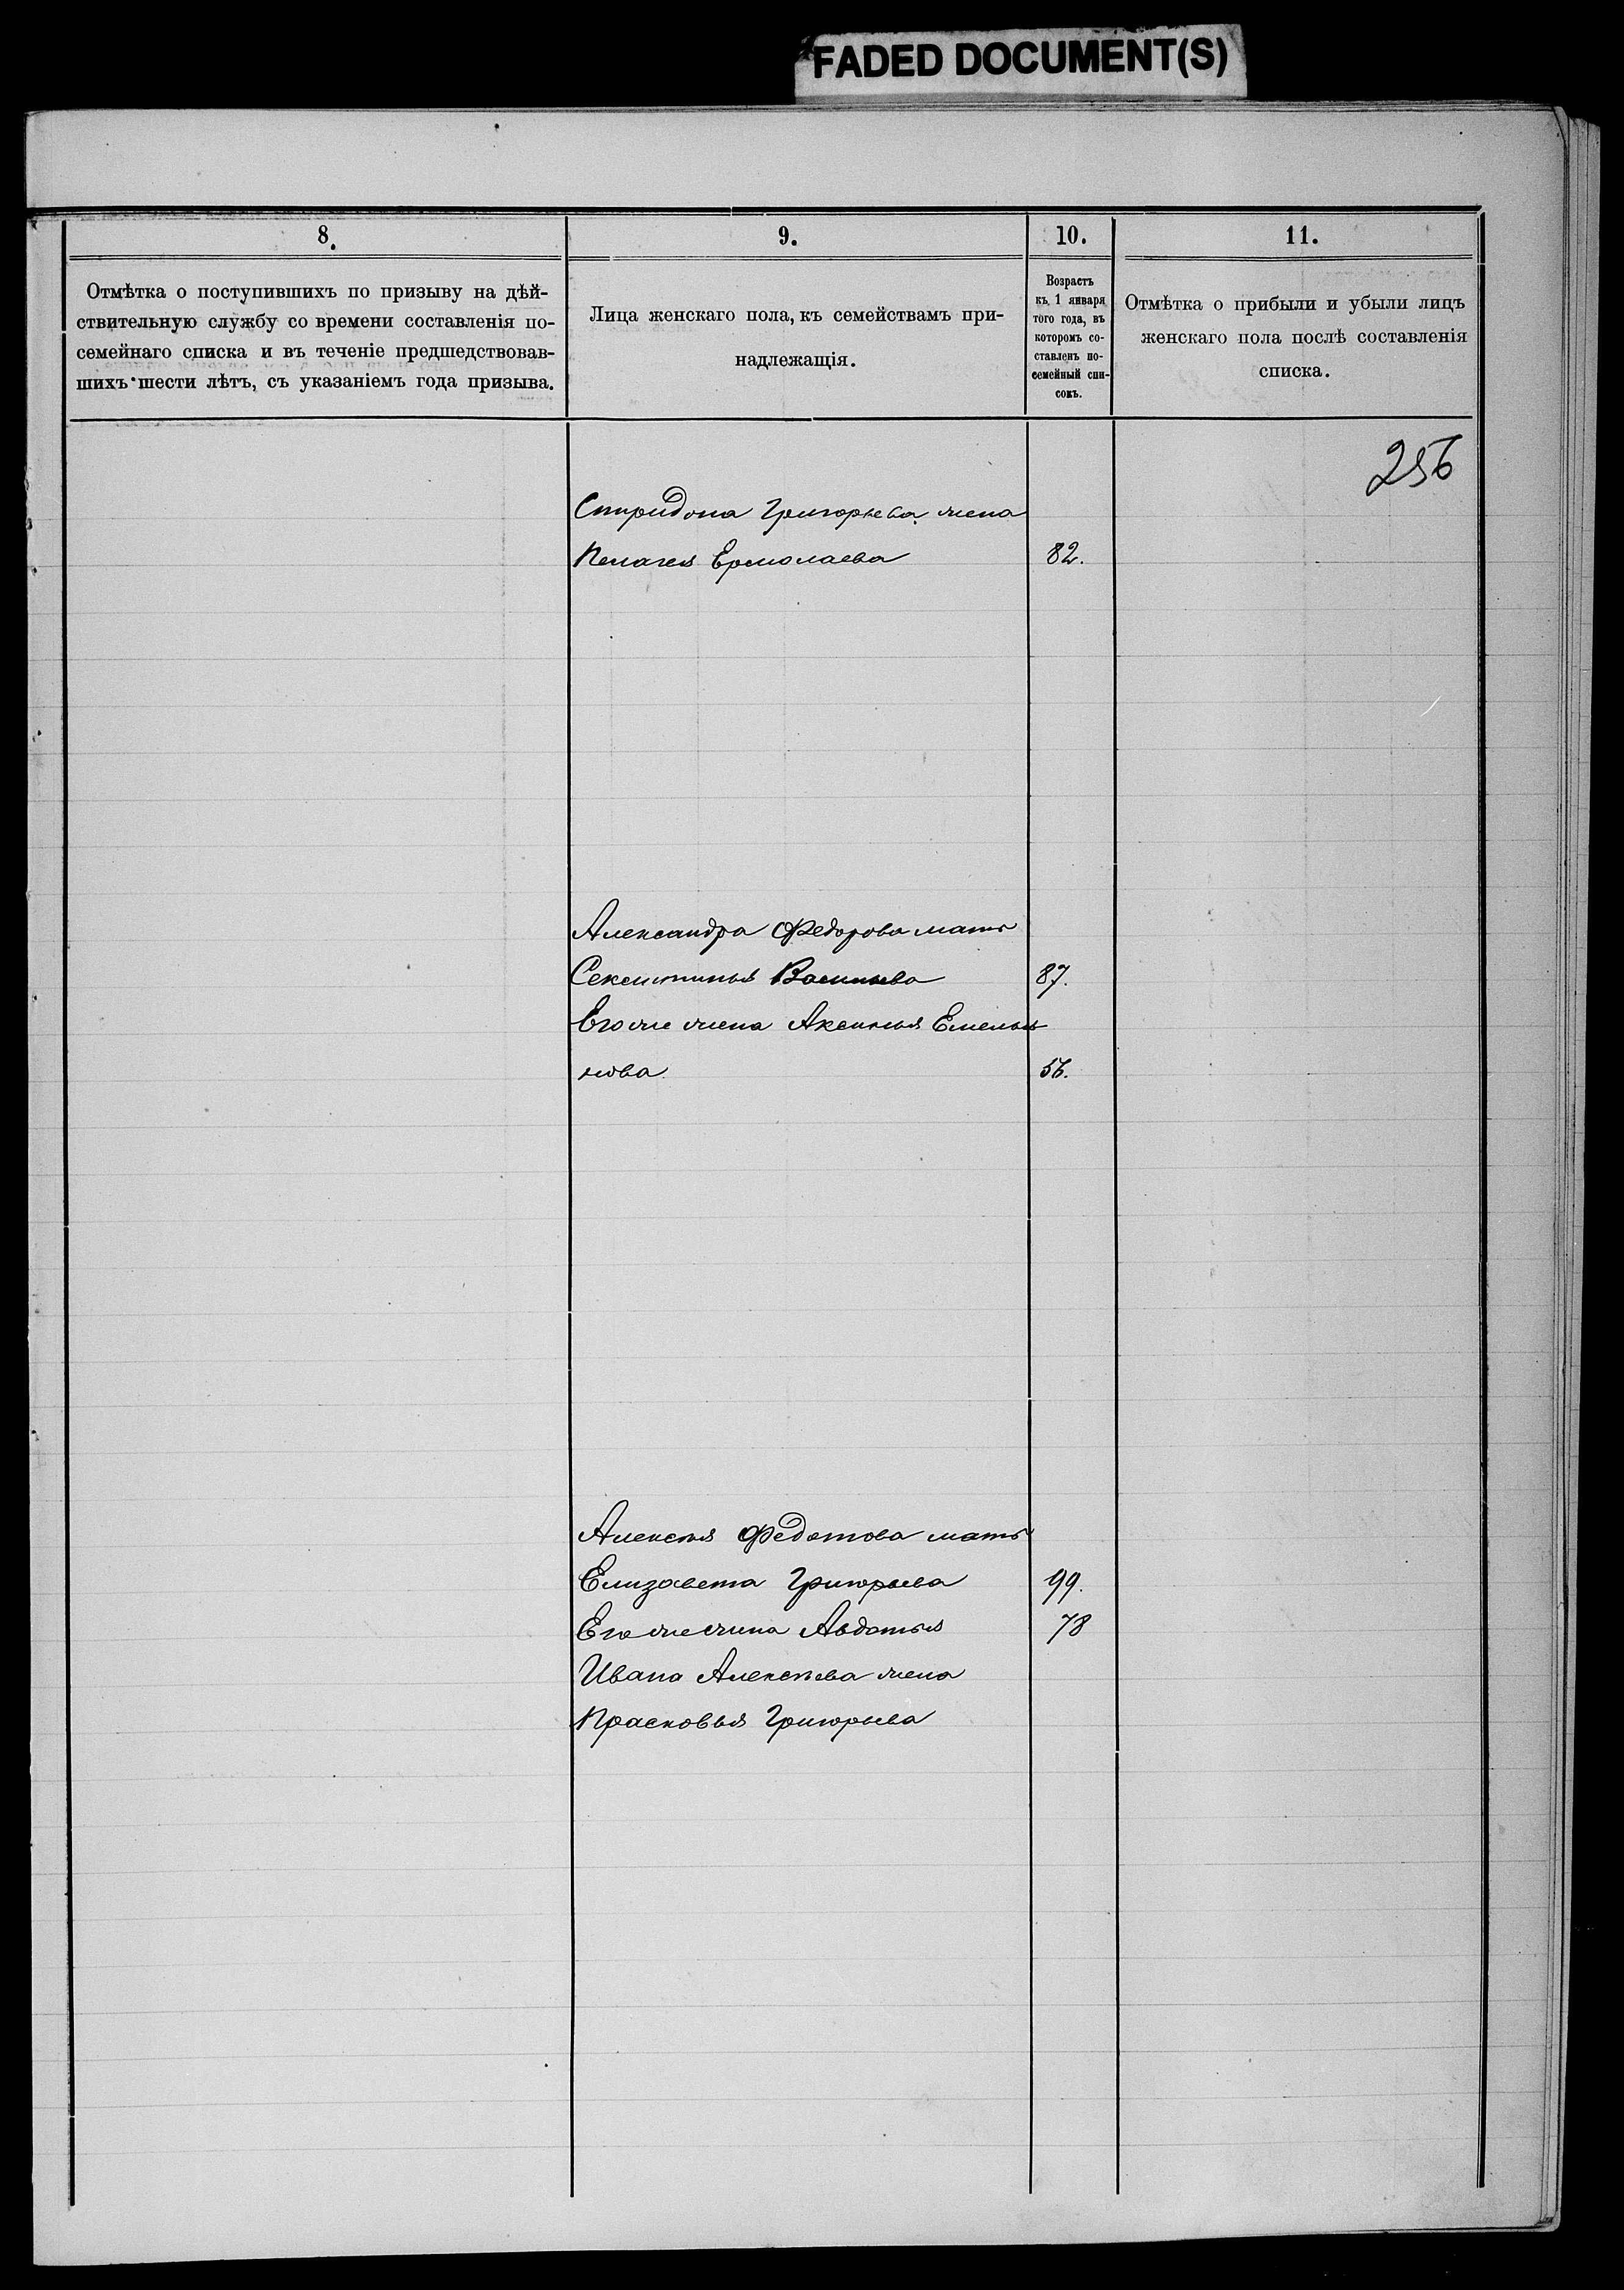 FADED DOCUMENT(S)
8.
9.
10.
11.
Отмѣтка о поступившихъ по призыву на дѣй-
ствительную службу со времени составленія по-
семейнаго списка и въ теченіе предшедствовав-
шихъ шести лѣтъ, съ указаніемъ года призыва.
Лица женскаго пола, къ семействамъ при-
надлежащія.
Возрастъ
къ 1 января
того года, въ
которомъ со-
ставленъ по-
семейный спи-
сокъ.
Отмѣтка о прибыли и убыли лицъ
женскаго пола послѣ составленія
списка.
256
Спиридона Григорьева жена
Пелагея Ермолаева 82.
Александра Федорова мать
Секлитинья Васильева 87.
Его же жена Аксинья Емелья
нова 56.
Алексѣя Федотова мать
Елизавета Григорьева 99.
Его же жина Авдотья 78
Ивана Алексѣева жена
Прасковья Григорьева